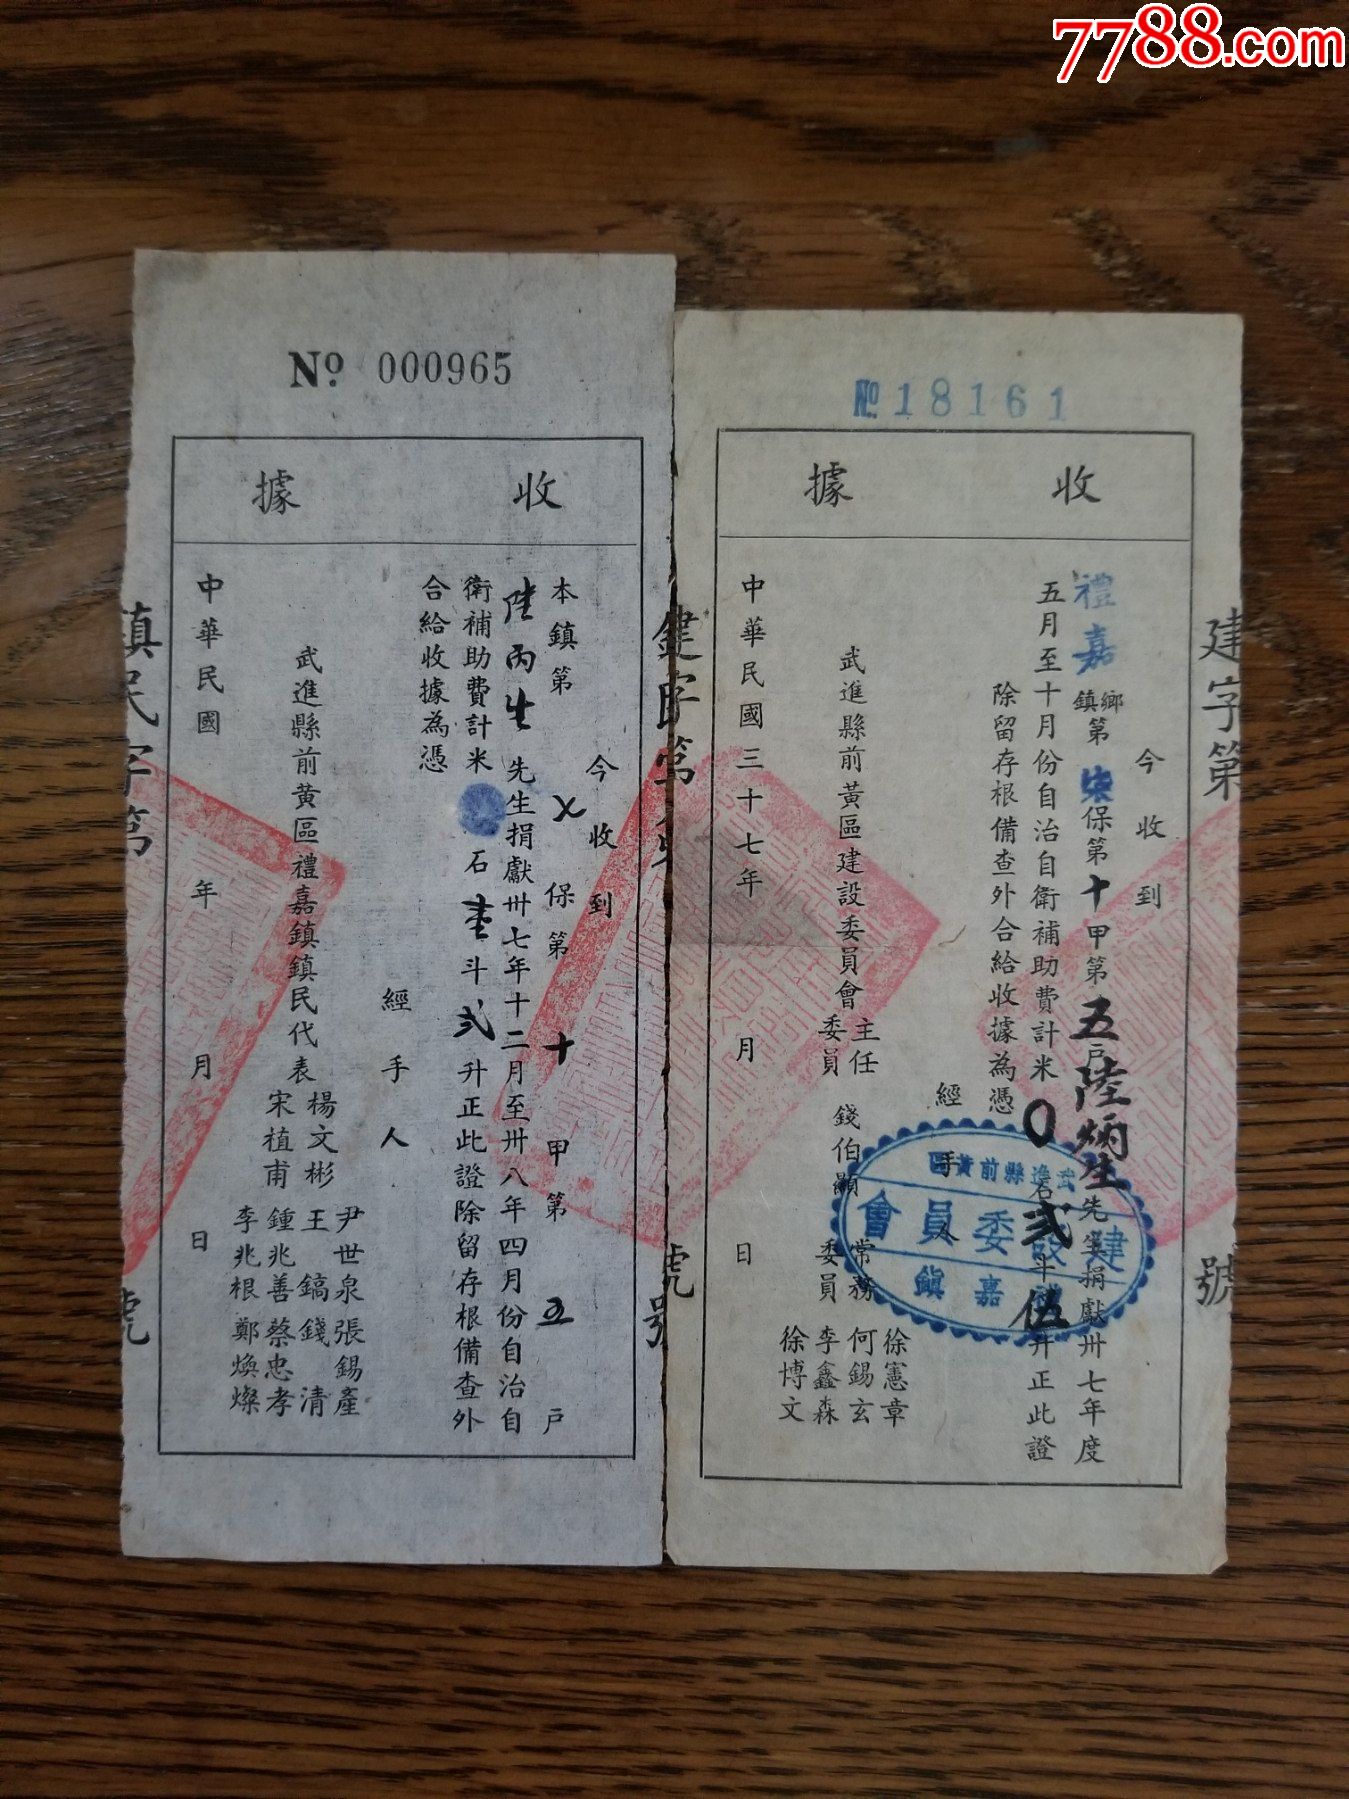 7788.com
No. 18161
收據
今收到
禮嘉鄉鎮第柒保第十甲第五戶陸炳生先生捐獻卅七年度
五月至十月份自治自衛補助費計米〇石弍斗伍升正此證
除留存根備查外合給收據為憑
經手人
武進縣前黃區建設委員會主任委員 錢伯顯 常務委員 徐憲章 何錫玄 李鑫森 徐博文
中華民國三十七年 月 日
建字第 號
武進縣前黃區
建設委員會
禮嘉鎮
No. 000965
收據
今收到
本鎮第〤保第十甲第五戶
陸丙生先生捐獻卅七年十二月至卅八年四月份自治自
衛補助費計米 石壹斗弍升正此證除留存根備查外
合給收據為憑
經手人
武進縣前黃區禮嘉鎮鎮民代表 楊文彬 宋植甫 尹世泉 張錫產 王鎬 錢清 鍾兆善 蔡忠孝 李兆根 鄭煥燦
中華民國 年 月 日
鎮民字第 號